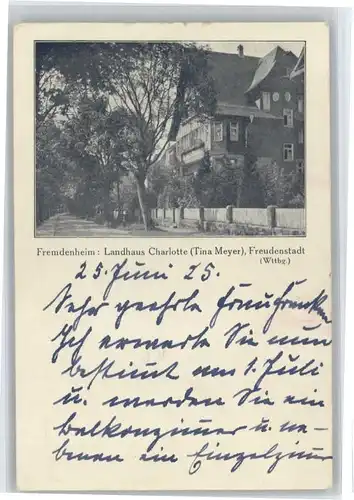 Fremdenheim: Landhaus Charlotte (Tina Meyer), Freudenstadt
(Wttbg.)
25. Juni 25.
Sehr geehrte Frau Francken
Ich erwarte Sie nun
bestimmt am 1. Juli
u. werden Sie ein
Balkonzimmer u. ne-
benan ein Einzelzim